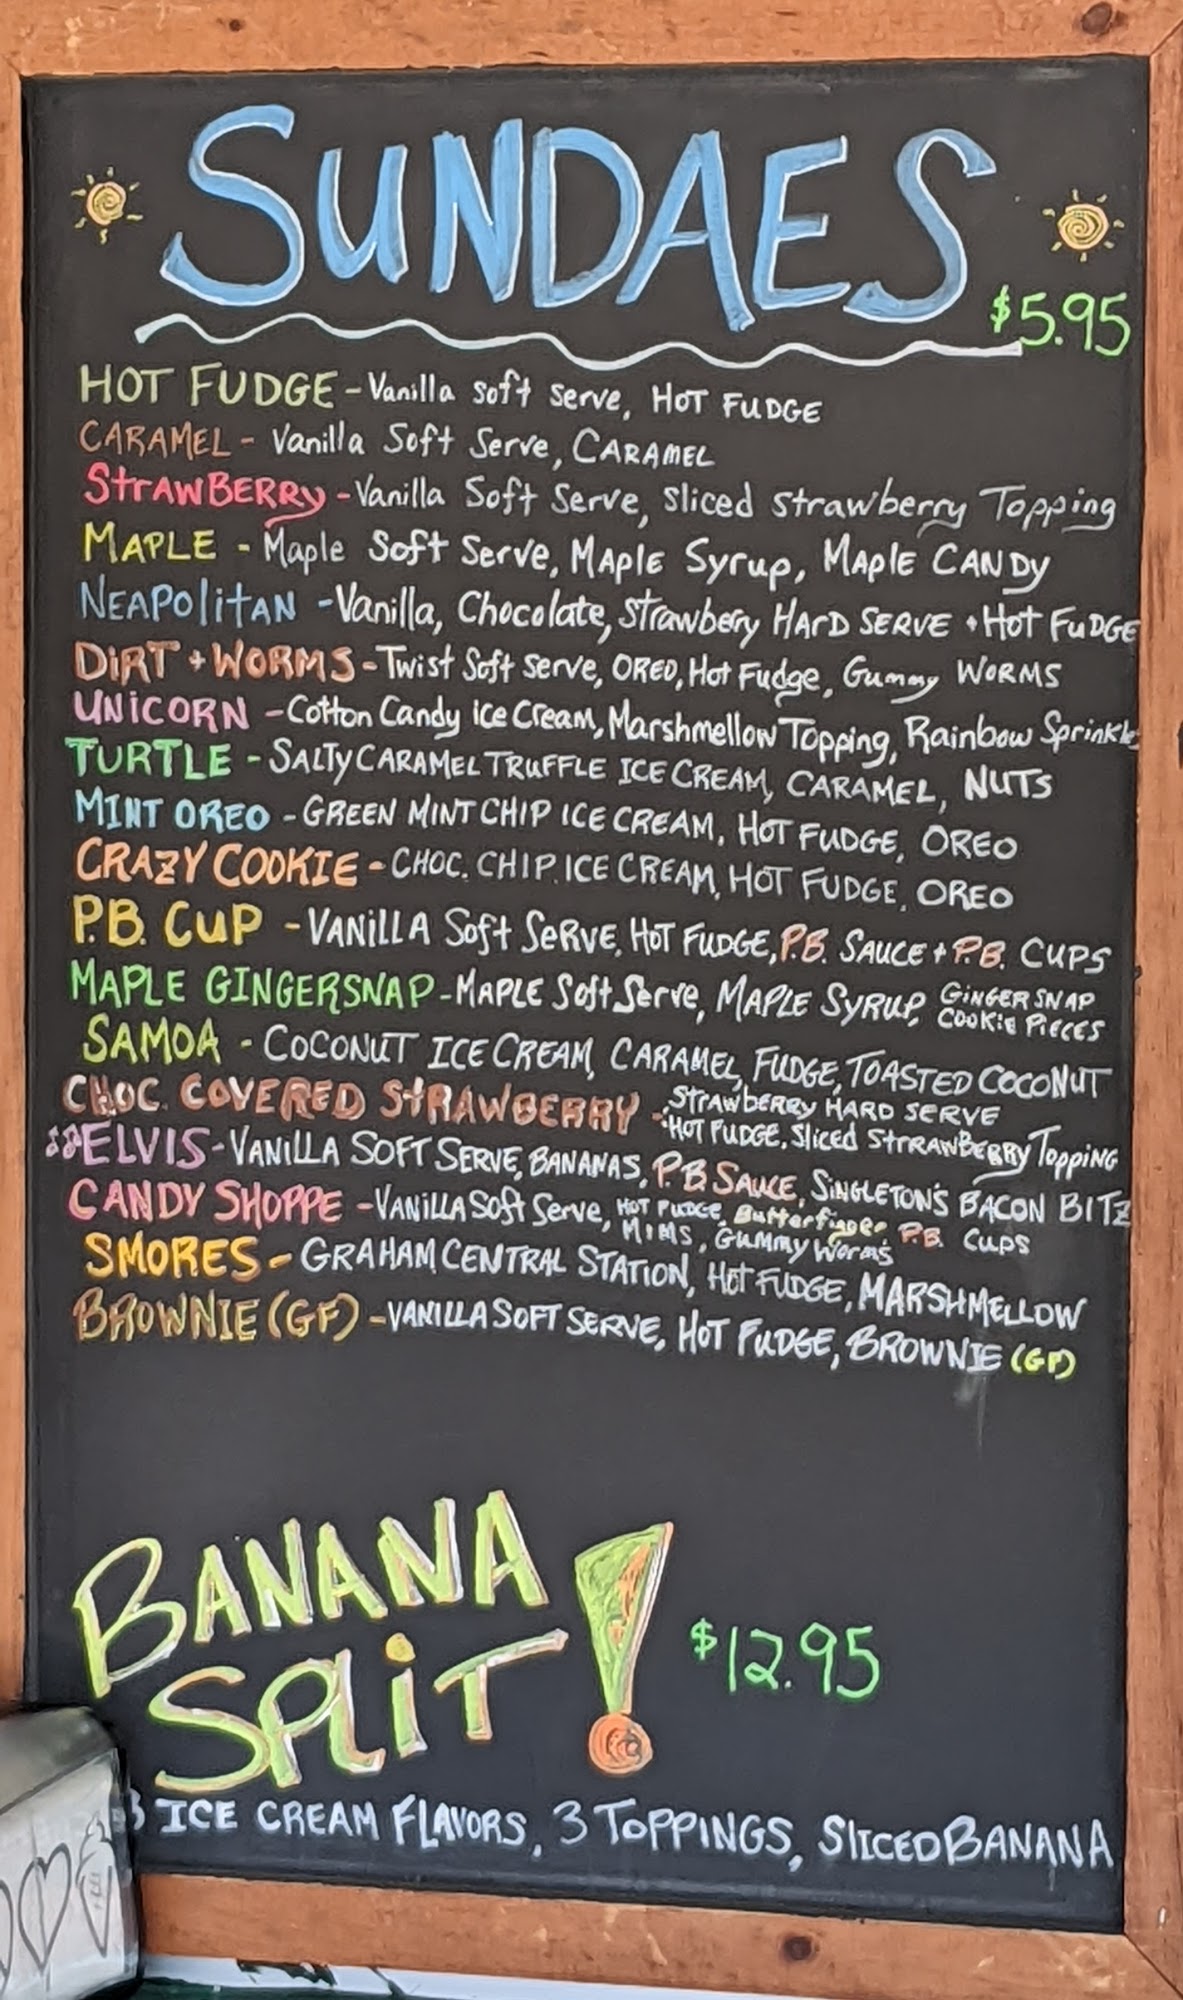 SUNDAES
$5.95
HOT FUDGE - Vanilla Soft Serve, HOT FUDGE
CARAMEL - Vanilla Soft Serve, CARAMEL
StrAWBERRy - Vanilla Soft Serve, Sliced Strawberry Topping
MAPLE - Maple Soft Serve, MAPle Syrup, MAPle CANDy
NEAPOlitAN - Vanilla, Chocolate, Strawbery HARD SERVE + Hot FuDGE
DiRT + WORMS - Twist Soft Serve, OREO, Hot Fudge, Gummy WORMS
UNiCORN - Cotton Candy ice Cream, Marshmellow Topping, Rainbow Sprinkles
TURTLE - SALTy CARAMEL TRUFFLE ICE CREAM, CARAMEL, NUTS
MINT OREO - GREEN MINT CHIP ICE CREAM, HOT FUDGE, OREO
CRAZY COOKIE - CHOC. CHIP ICE CREAM, HOT FUDGE, OREO
P.B. CUP - VANiLLA Soft SeRVE, HOT FUDGE, P.B. SAUCE + P.B. CUPS
MAPLE GINGERSNAP - MAPLE Soft Serve, MAPLE SYRUP, GiNGER SNAP COOKiE PiECES
SAMOA - COCONUT ICE CREAM, CARAMEL, FUDGE, TOASTED COCONUT
CHOC. COVERED STRAWBERRY - STRAWBERRY HARD SERVE
HOT FUDGE, Sliced STRRAWBERRY Topping
ELVIS - VANILLA SOFT SERVE, BANANAS, P.B SAUCE, SiNGLETON'S BACON BITZ
CANDY SHOPPE - VANILLA Soft Serve, HOT FUDGE, Butterfinger, P.B. CUPS
M+MS, GUMMY WORMS
SMORES - GRAHAM CENTRAL STATION, HOT FUDGE, MARSHMELLOW
BROWNIE (GF) - VANILLA SOFT SERVE, HOT FUDGE, BROWNIE (GF)
BANANA
SPLiT!
$12.95
3 ICE CREAM FLAVORS, 3 TOPPINGS, SLICED BANANA